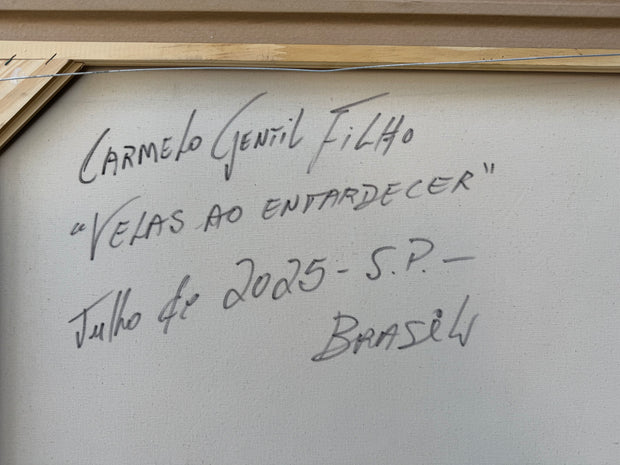 CARMELO GENTIL FILHO
"VELAS AO ENTARDECER"
Julho de 2025 - S.P. -
BRASIL